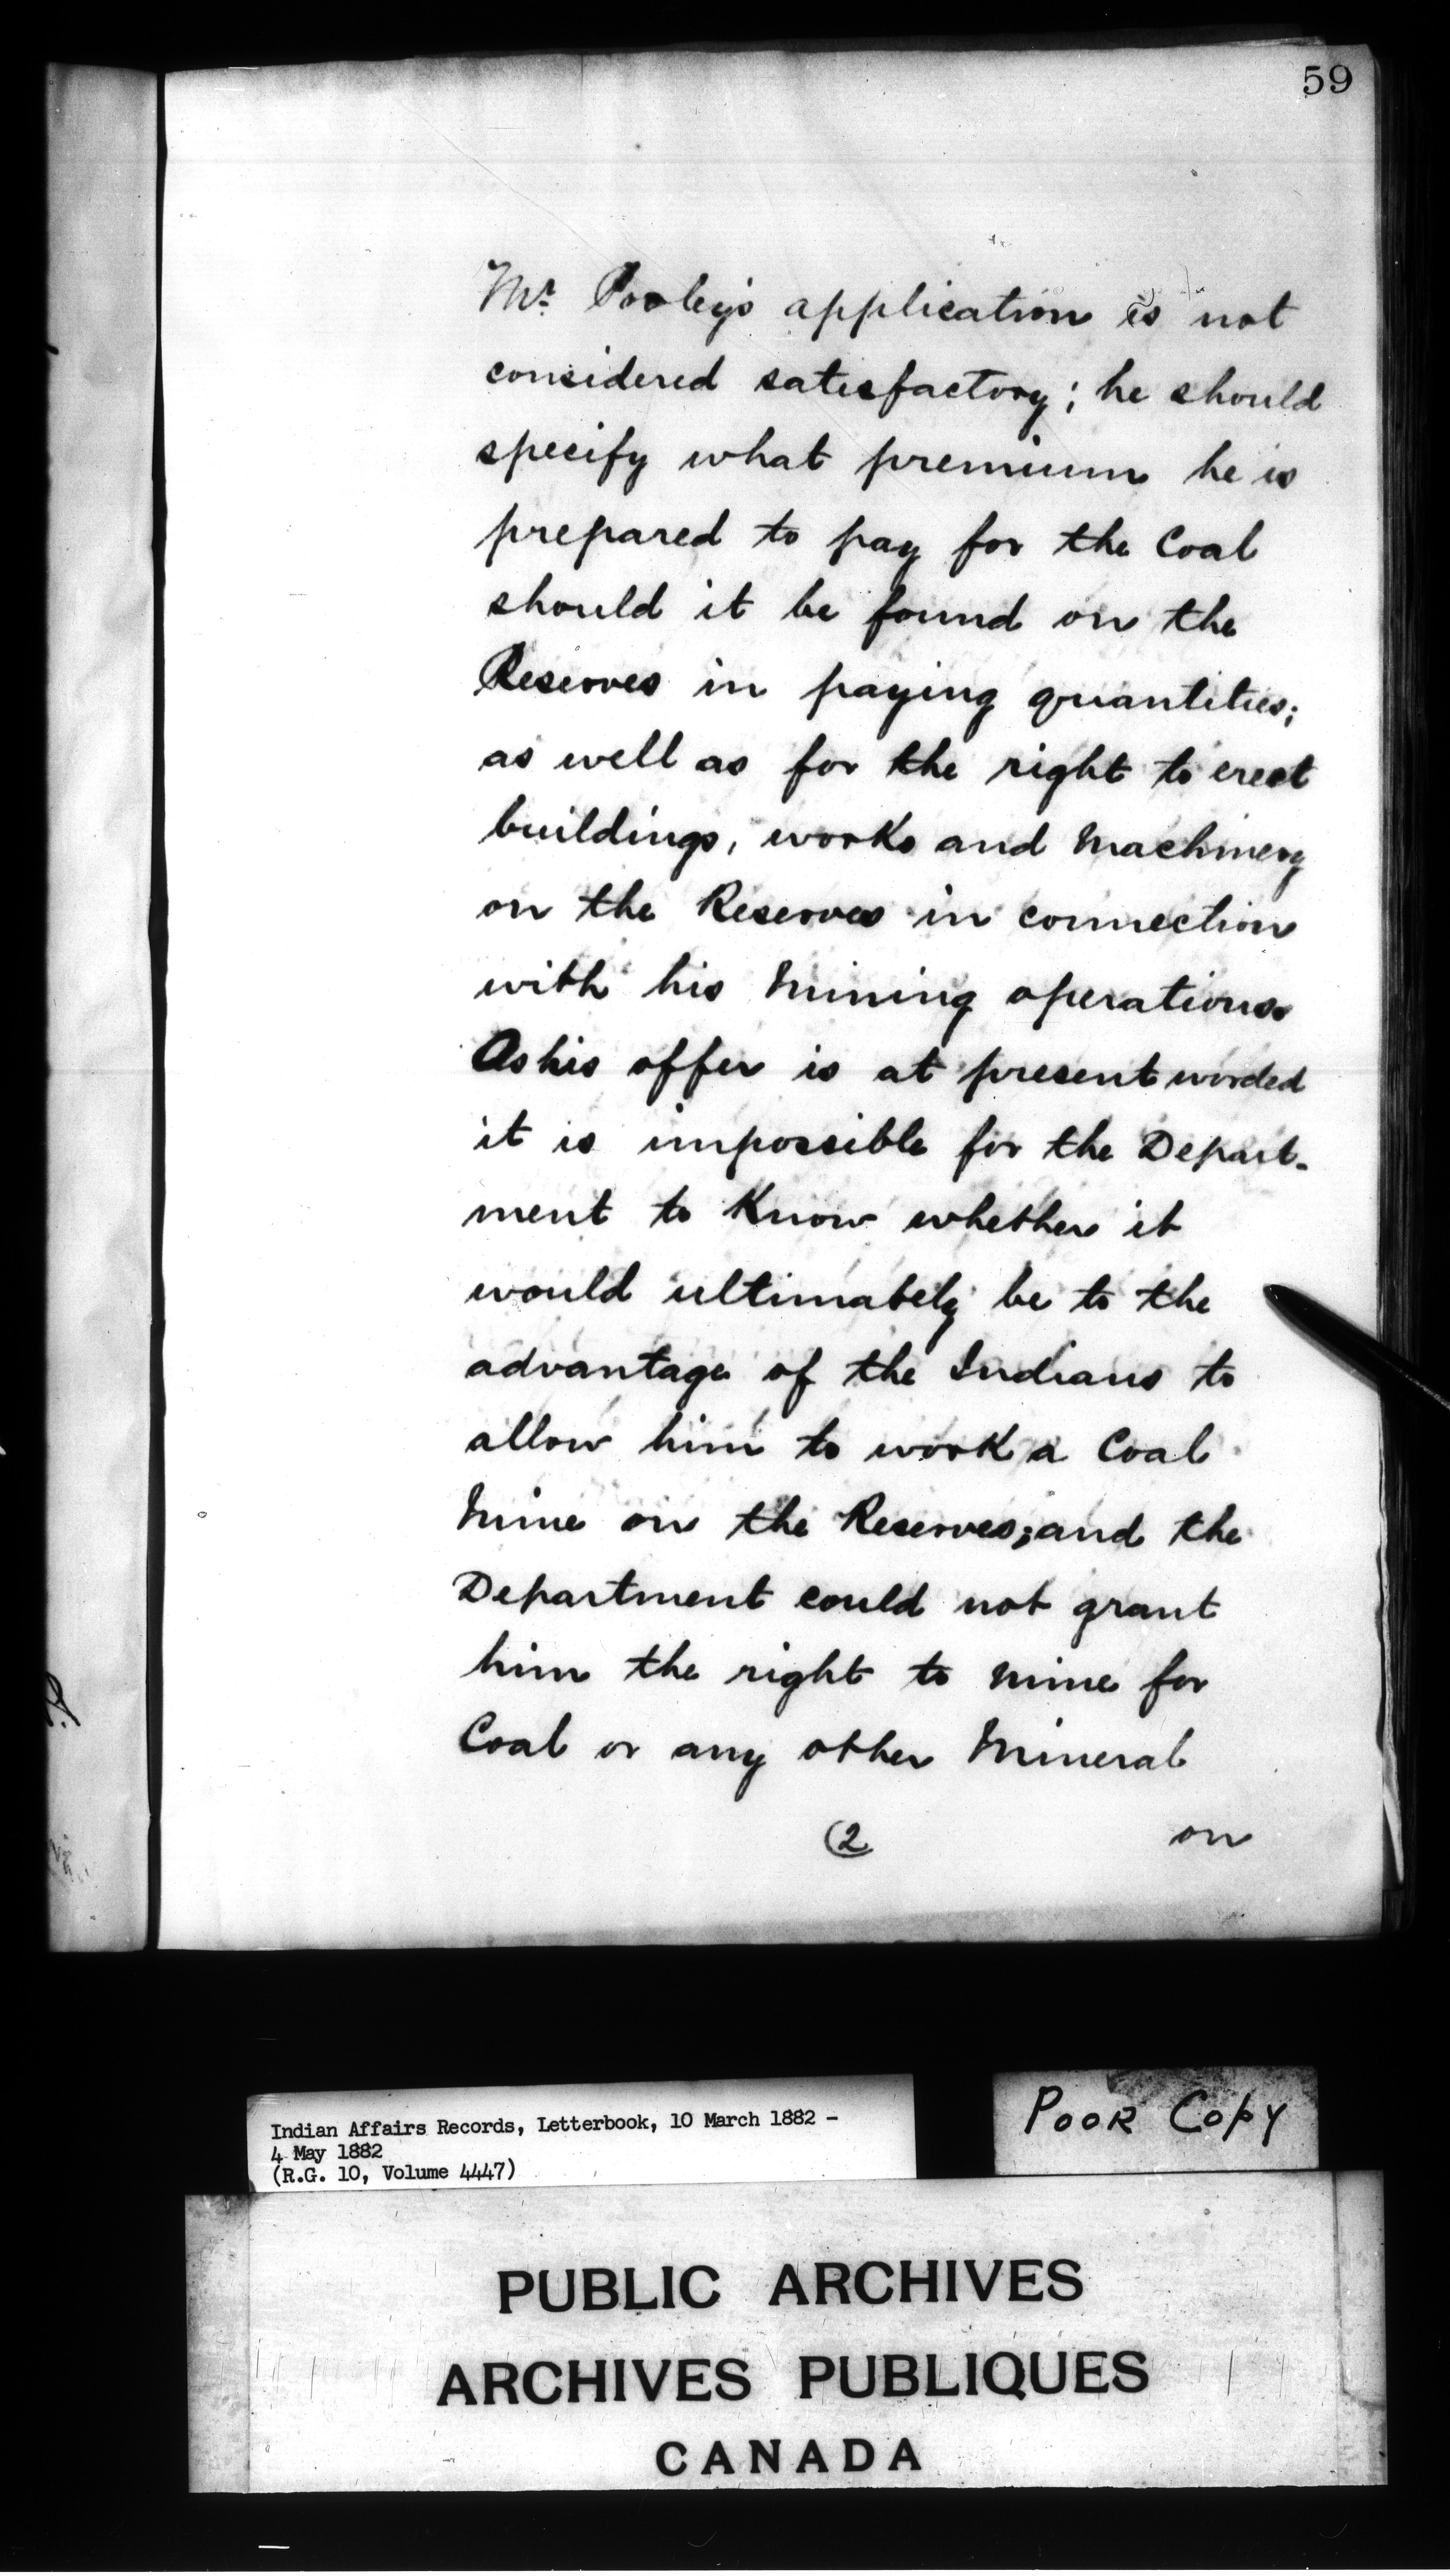 59
Mr. Pooley's application is not
considered satisfactory; he should
specify what premium he is
prepared to pay for the Coal
should it be found on the
Reserves in paying quantities;
as well as for the right to erect
buildings, works and Machinery
on the Reserves in connection
with his Mining operations
As his offer is at present worded
it is impossible for the Depart-
ment to Know whether it
would ultimately be to the
advantage of the Indians to
allow him to work a Coal
Mine on the Reserves; and the
Department could not grant
him the right to Mine for
Coal or any other Mineral
2 on
Indian Affairs Records, Letterbook, 10 March 1882 -
4 May 1882
(R.G. 10, Volume 4447)
Poor Copy
PUBLIC ARCHIVES
ARCHIVES PUBLIQUES
CANADA